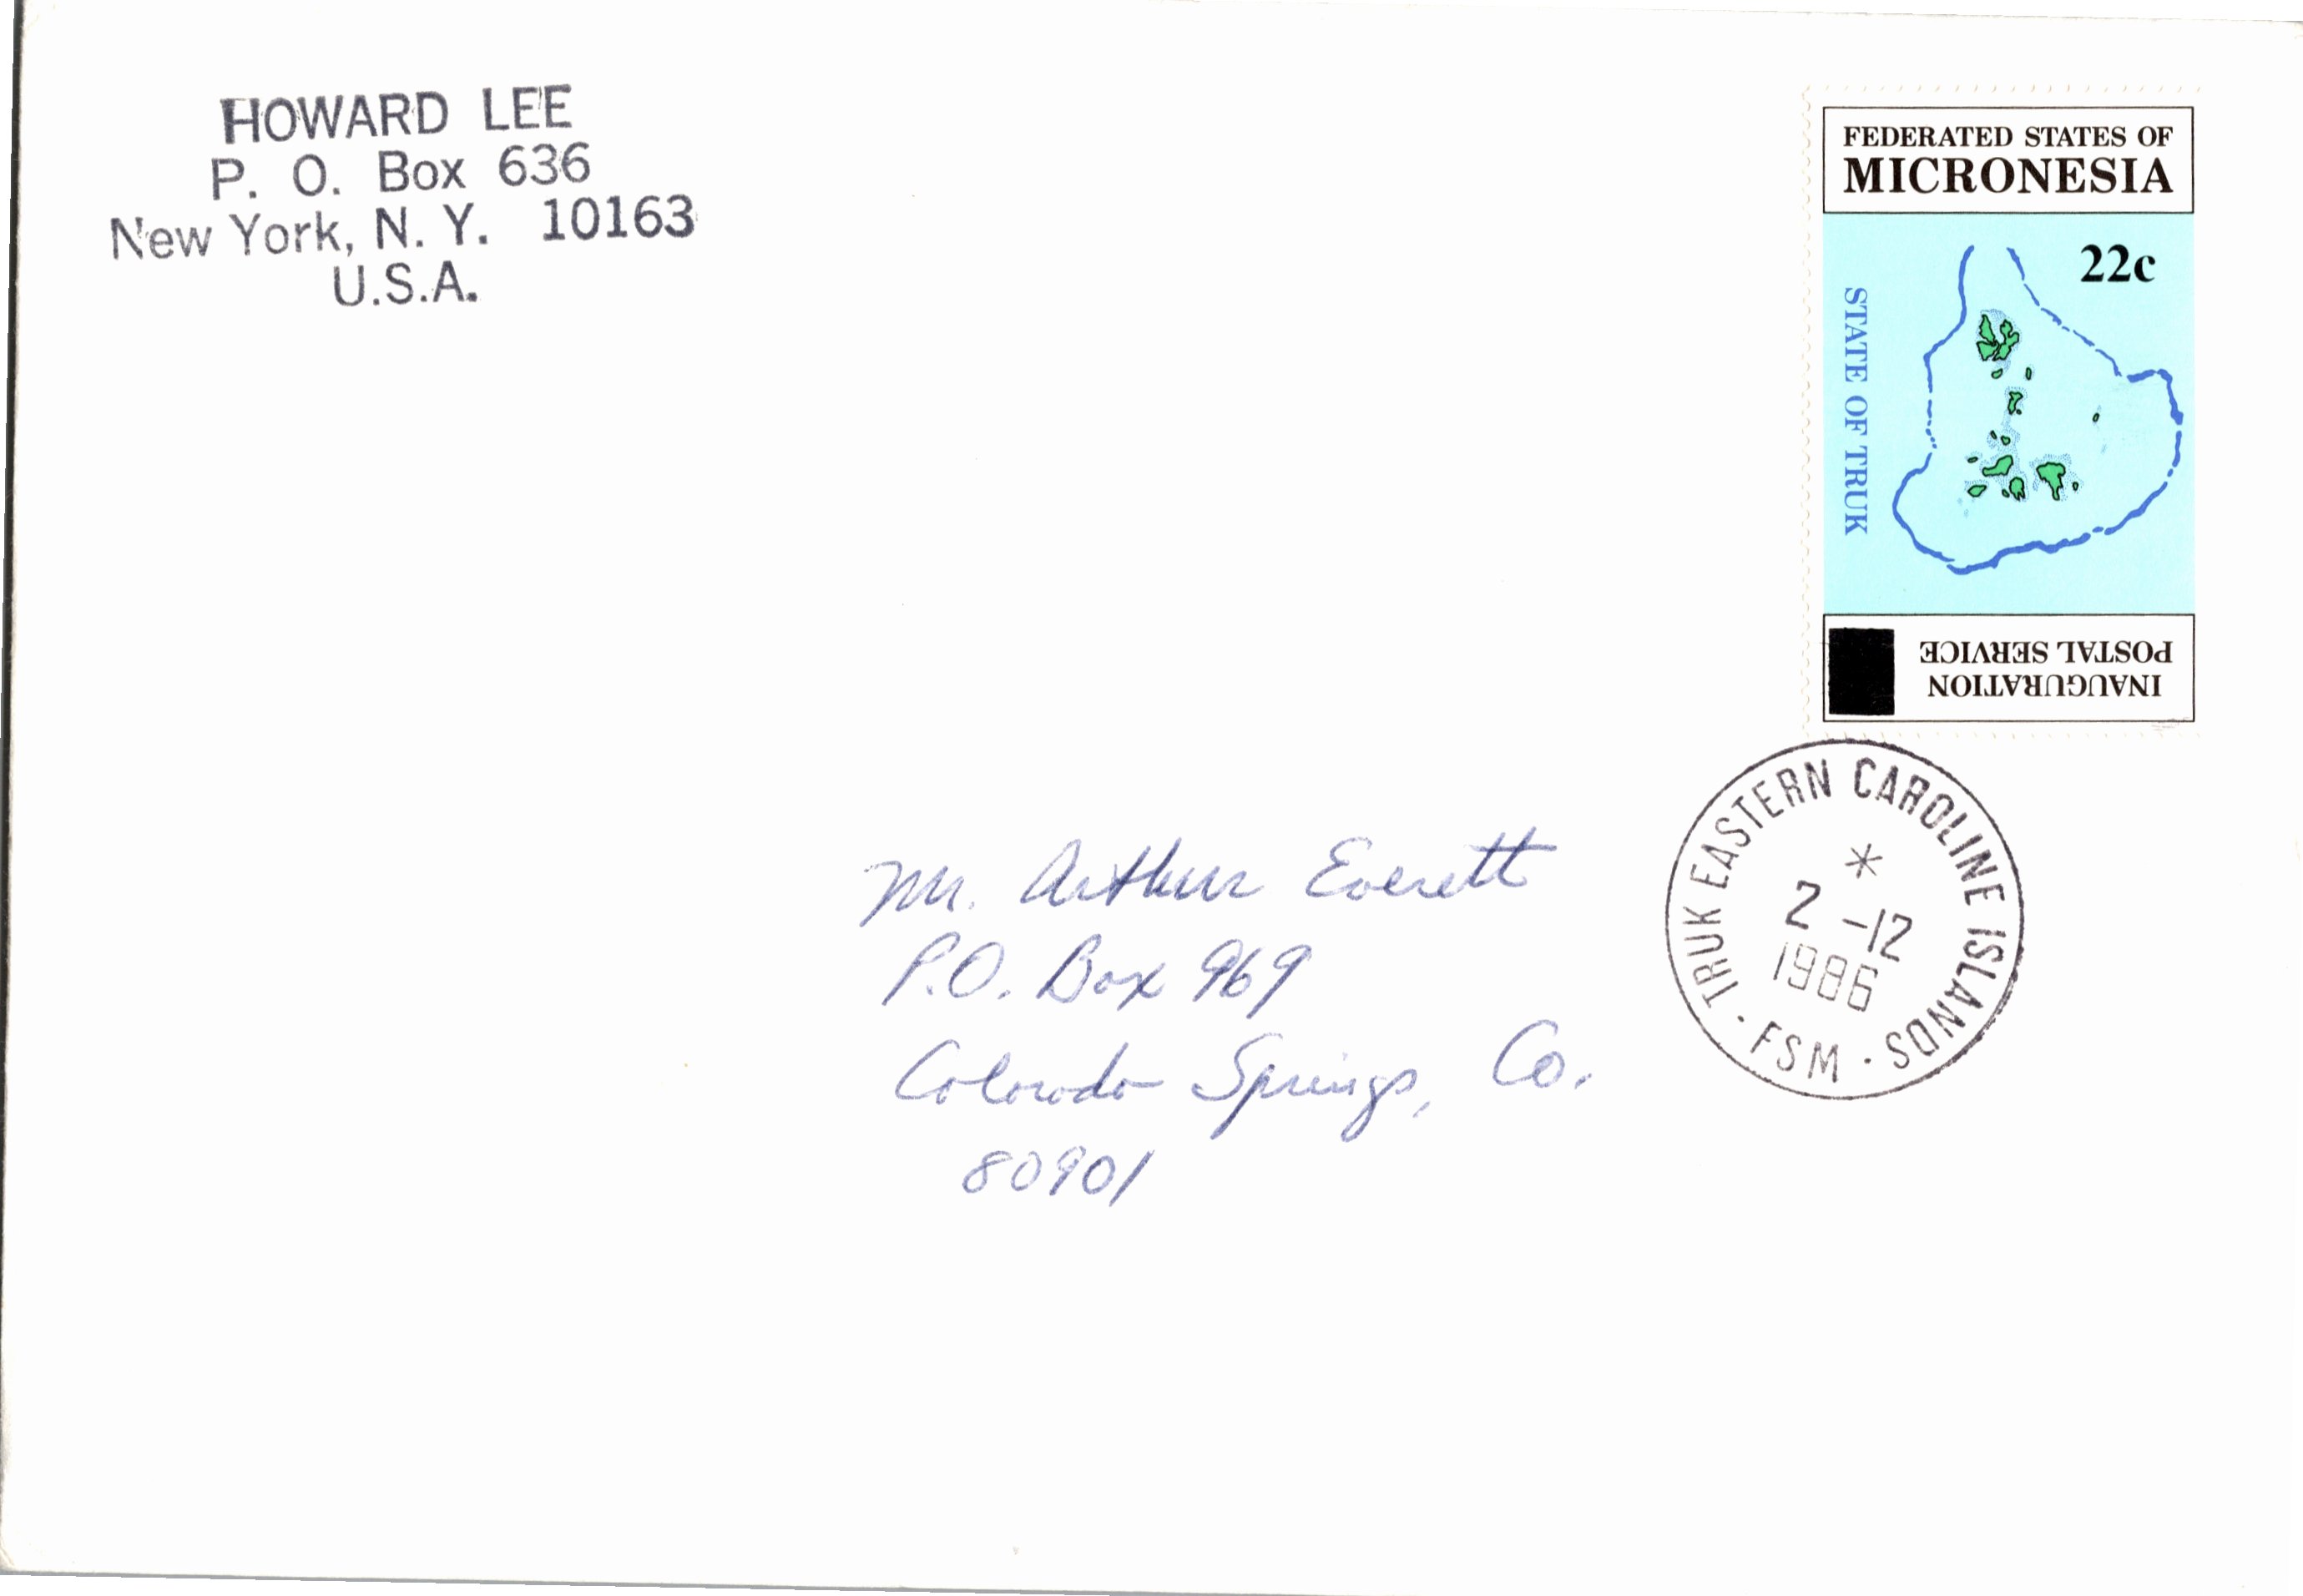 HOWARD LEE
P. O. Box 636
New York, N. Y. 10163
U.S.A.
FEDERATED STATES OF
MICRONESIA
22c
STATE OF TRUK
INAUGURATION
POSTAL SERVICE
TRUK EASTERN CAROLINE ISLANDS · FSM ·
*
2 -12
1986
Mr. Arthur Everett
P.O. Box 969
Colorado Springs, Co.
80901